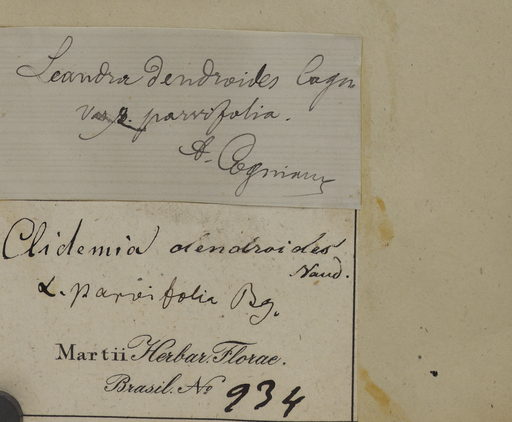 Leandra dendroides Cogn
var. β. parvifolia.
A. Cogniaux
Clidemia dendroides
Naud.
α. parvifolia Bg.
Martii Herbar. Florae.
Brasil. No 934